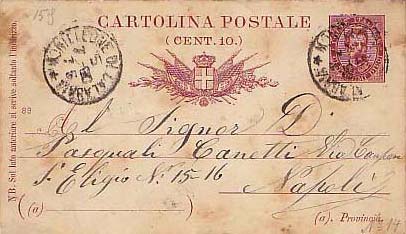 159
CARTOLINA POSTALE
(CENT. 10.)
MONTELEONE DI CALABRIA
89
NB. Sul lato anteriore si scrive soltanto l'indirizzo.
Al Signor D.
Pasquali Canetti Vico
S. Eligio N. 15-16
Napoli
(a)
(a). Provincia.